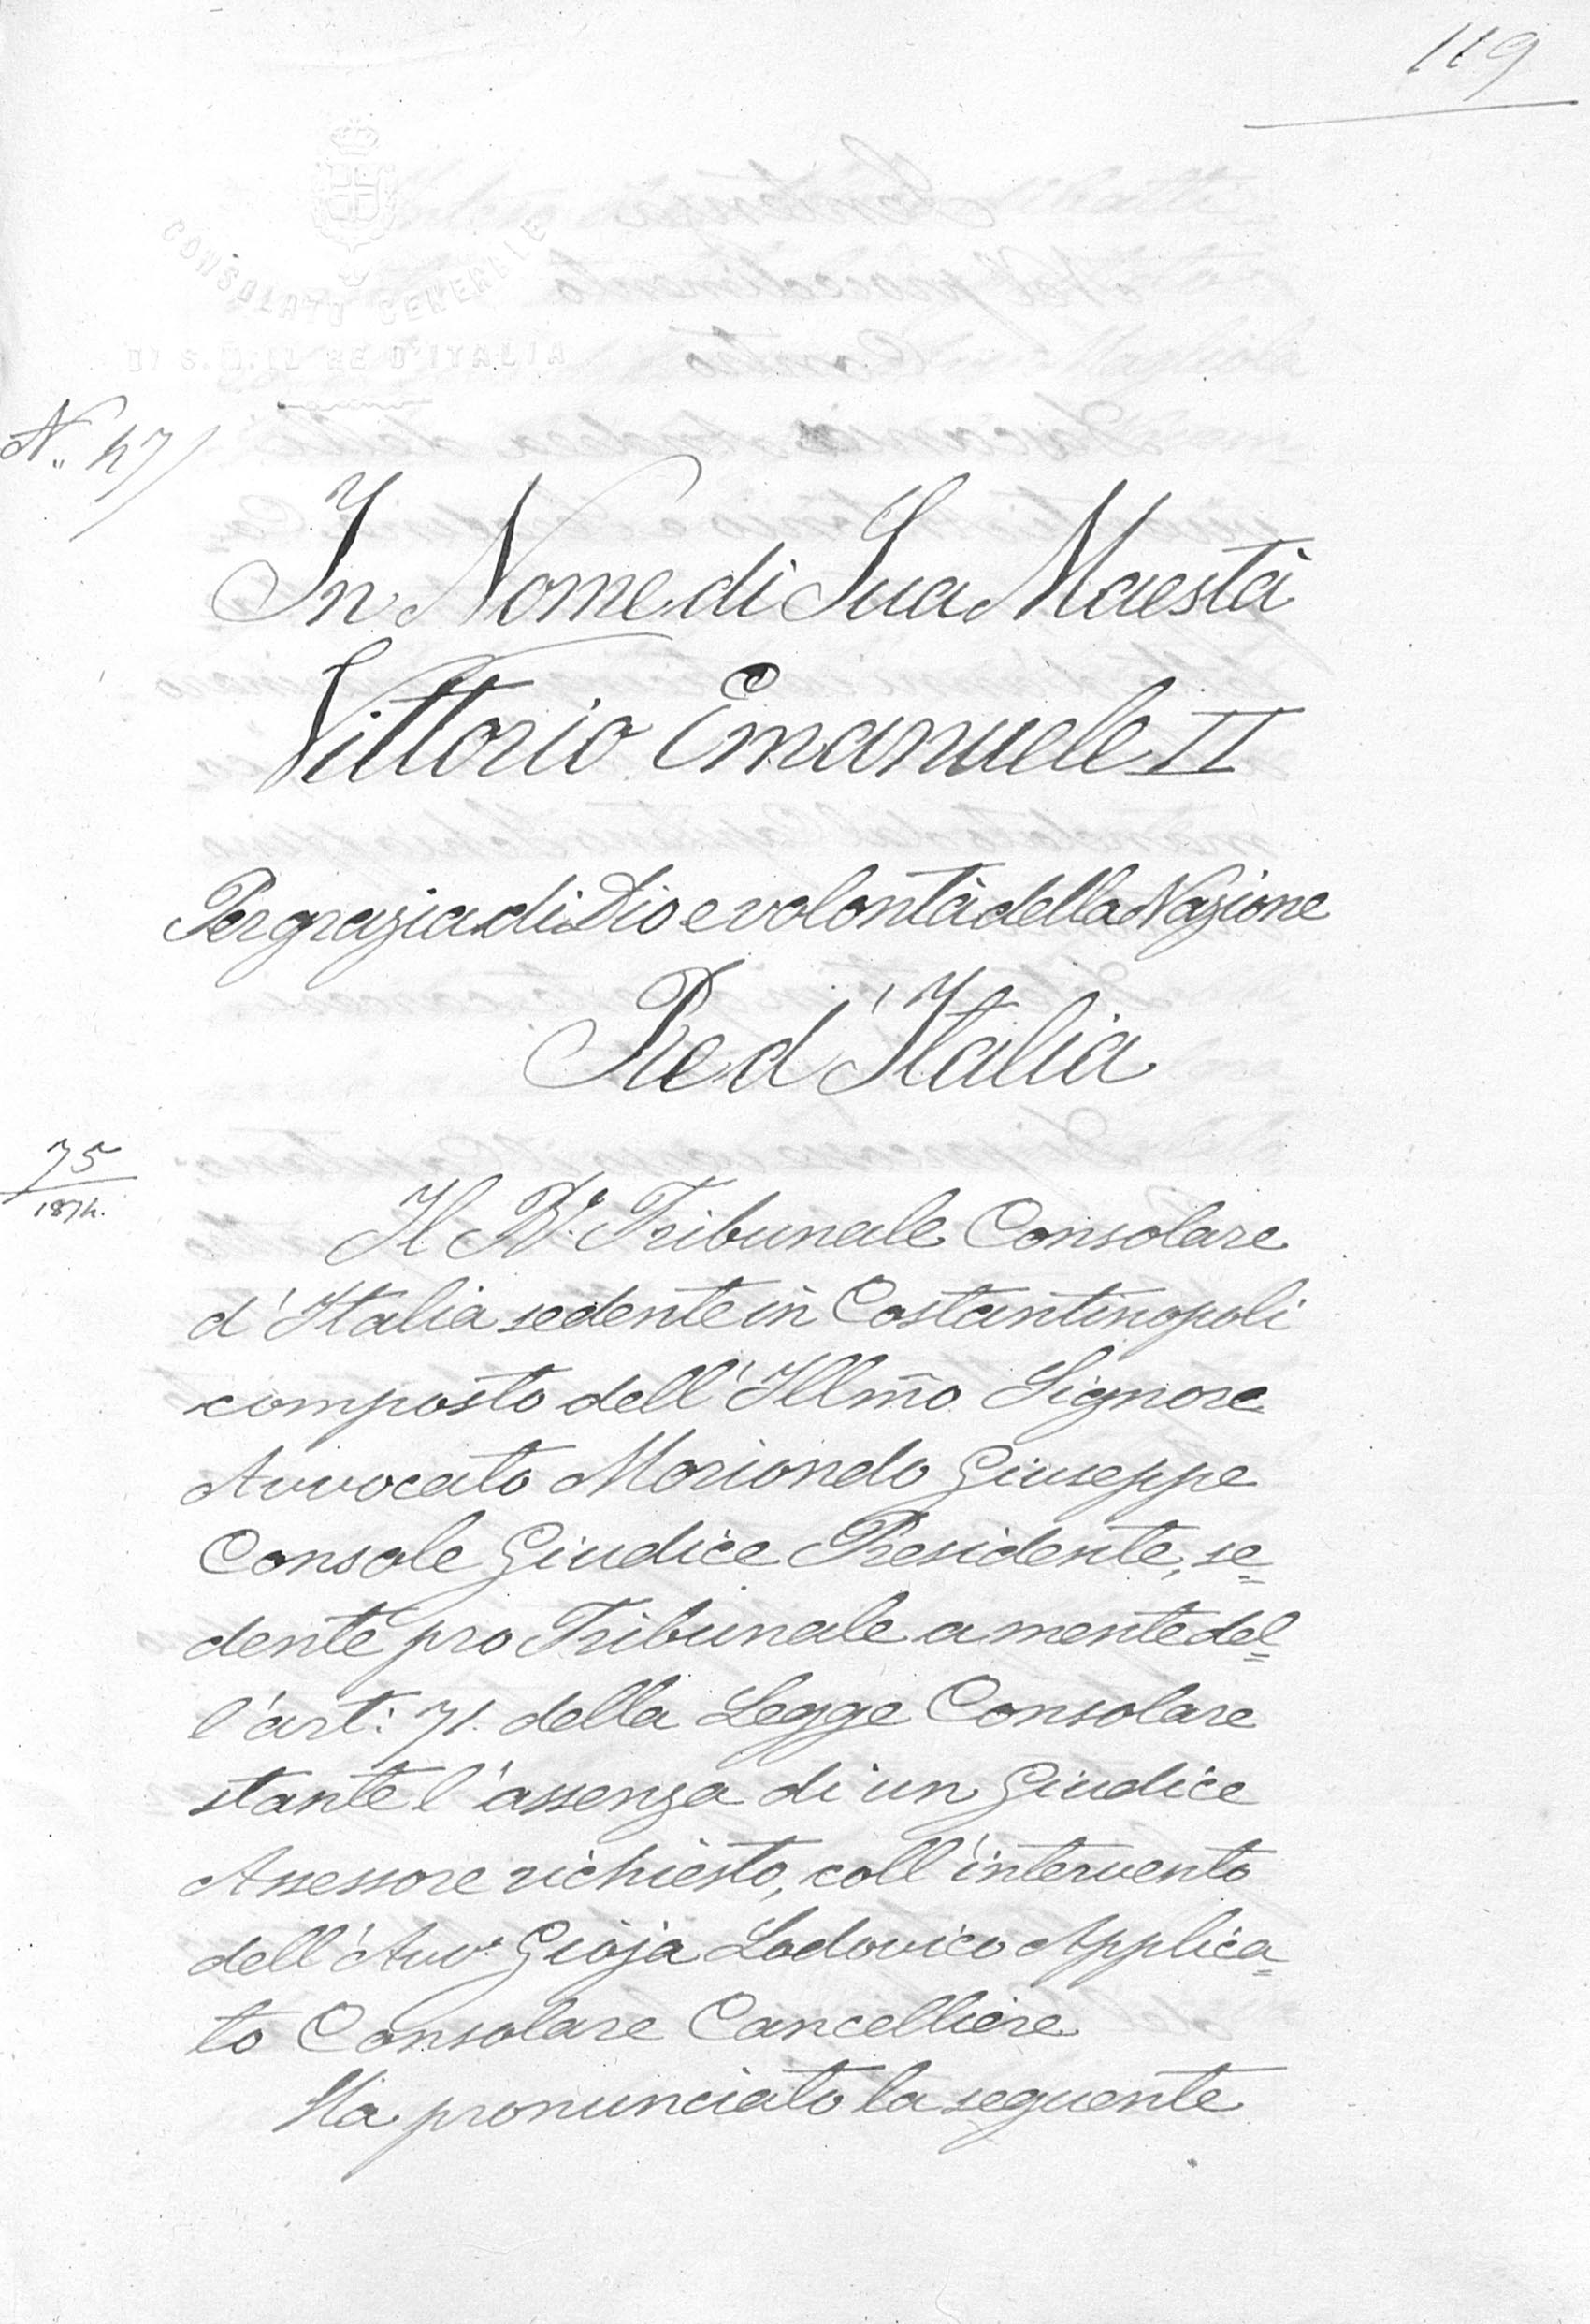 119
CONSOLATO GENERALE
DI S. M. IL RE D'ITALIA
N. 47
In Nome di Sua Maestà
Vittorio Emanuele II
Per grazia di Dio e volontà della Nazione
Re d'Italia
75
1874.
Il R.º Tribunale Consolare
d'Italia sedente in Costantinopoli
composto dell'Illm̃o Signore
Avvocato Moriondo Giuseppe
Console Giudice Presidente, se=
dente pro Tribunale a mente del=
l'art: 71. della Legge Consolare
stante l'assenza di un Giudice
Assessore richiesto, coll'intervento
dell'Avv.º Gioja Lodovico Applica=
to Consolare Cancelliere
Ha pronunciato la seguente